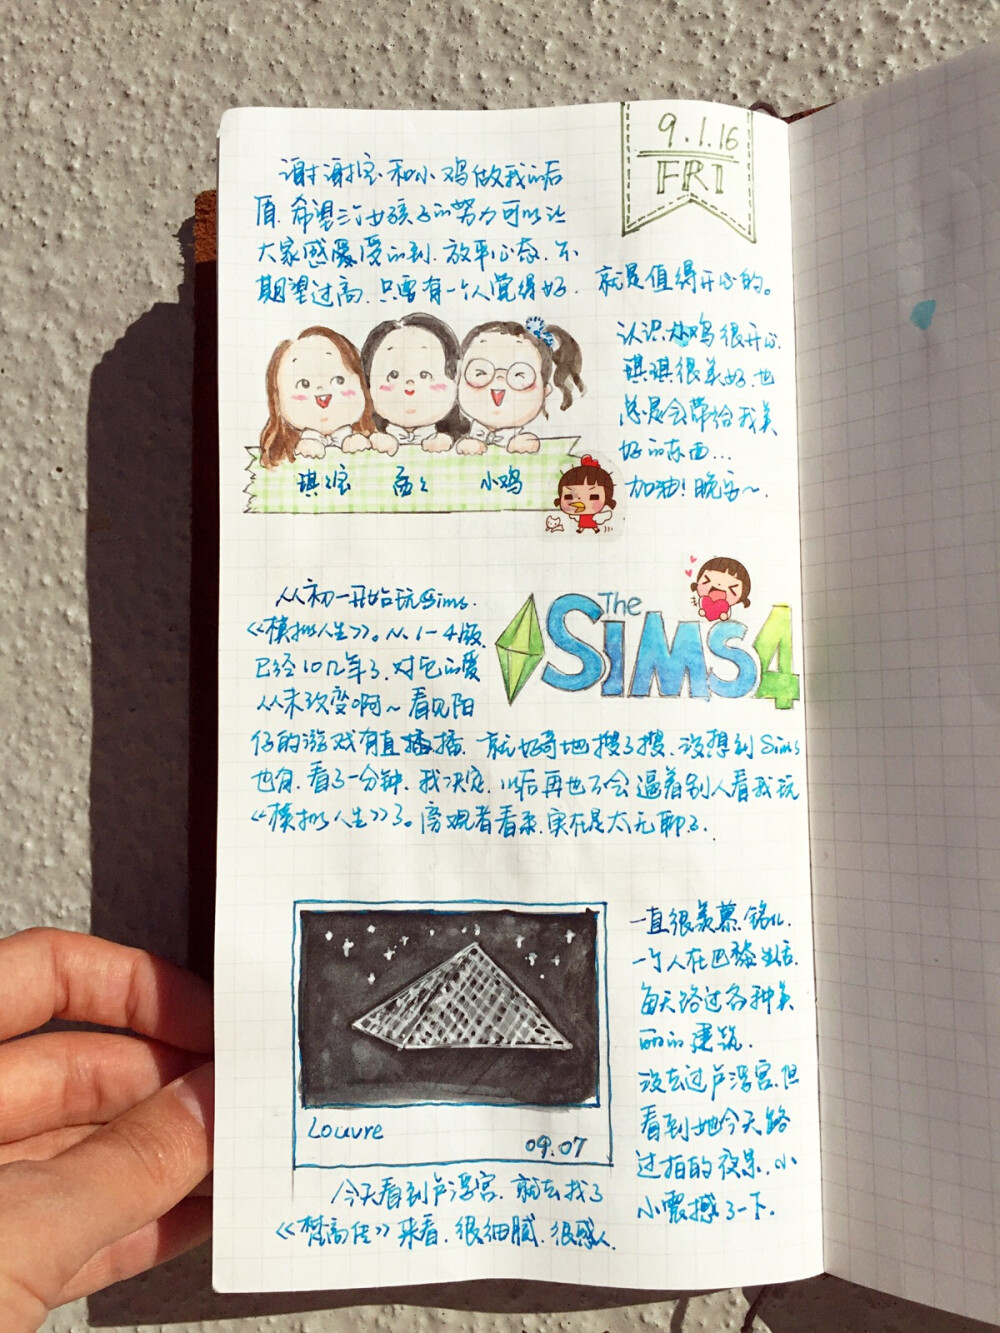 9.1.16
FRI
谢谢宝和小鸡做我的后
盾.希望三个女孩子的努力可以让
大家感受的到.放平心态.不
期望过高.只要有一个人觉得好.就是值得开心的。
认识小鸡很开心.
琪琪很美好.也
总是会带给我美
好的东西...
加油!晚安~.
琪琪宝
小鸡
从初一开始玩Sims.
《模拟人生》。从1-4版.
已经10几年了.对它的爱
从未改变啊~看见阳
仔的游戏有直播.就好奇地搜了搜.没想到Sims
也有.看了一分钟.我决定.以后再也不会逼着别人看我玩
《模拟人生》了。旁观者看来.实在是太无聊了.
The
SIMS4
一直很羡慕铭儿.
一个人在巴黎生活.
每天路过各种美
丽的建筑.
没去过卢浮宫.但
看到她今天路
过拍的夜景.小
小震撼了一下.
Louvre
09.07
今天看到卢浮宫.就去找了
《梵高传》来看.很细腻.很感人.